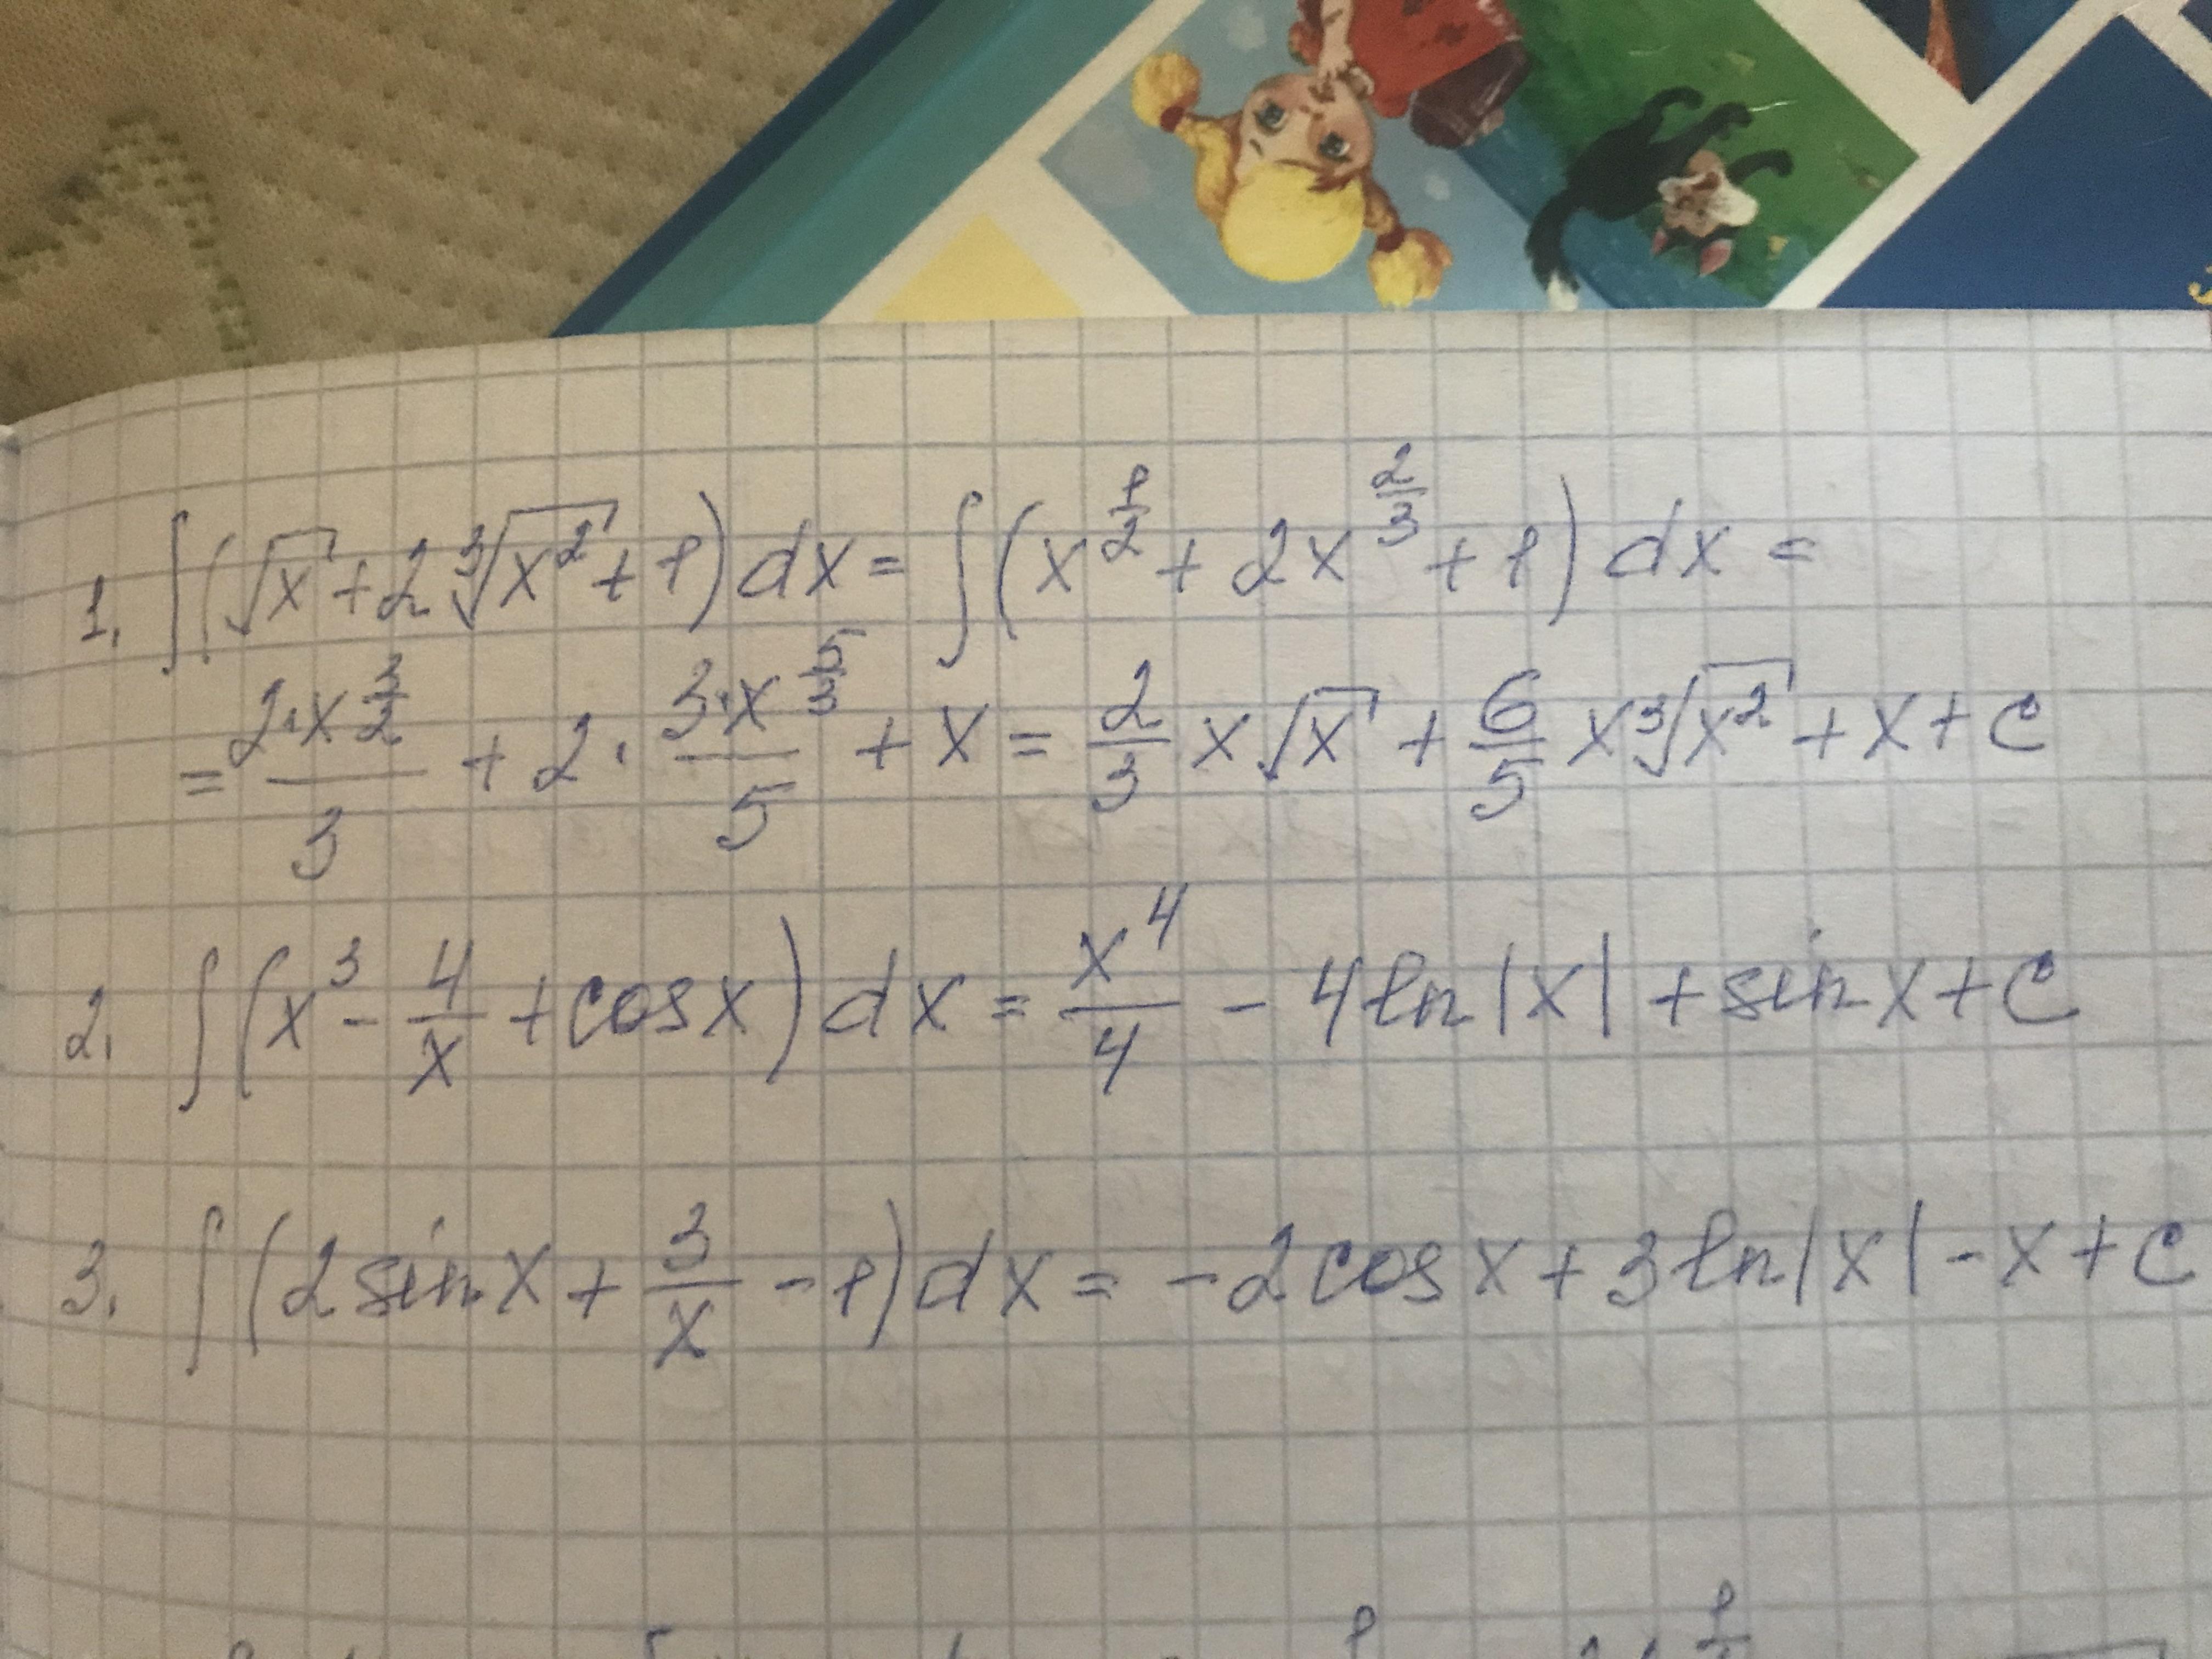 1. ∫(√x + 2∛x² + 1)dx = ∫(x^(1/2) + 2x^(2/3) + 1)dx =
= 2·x^(3/2)/3 + 2·3·x^(5/3)/5 + x = 2/3 x√x + 6/5 x∛x² + x + C
2. ∫(x³ - 4/x + cosx)dx = x⁴/4 - 4ln|x| + sinx + C
3. ∫(2sinx + 3/x - 1)dx = -2cosx + 3ln|x| - x + C